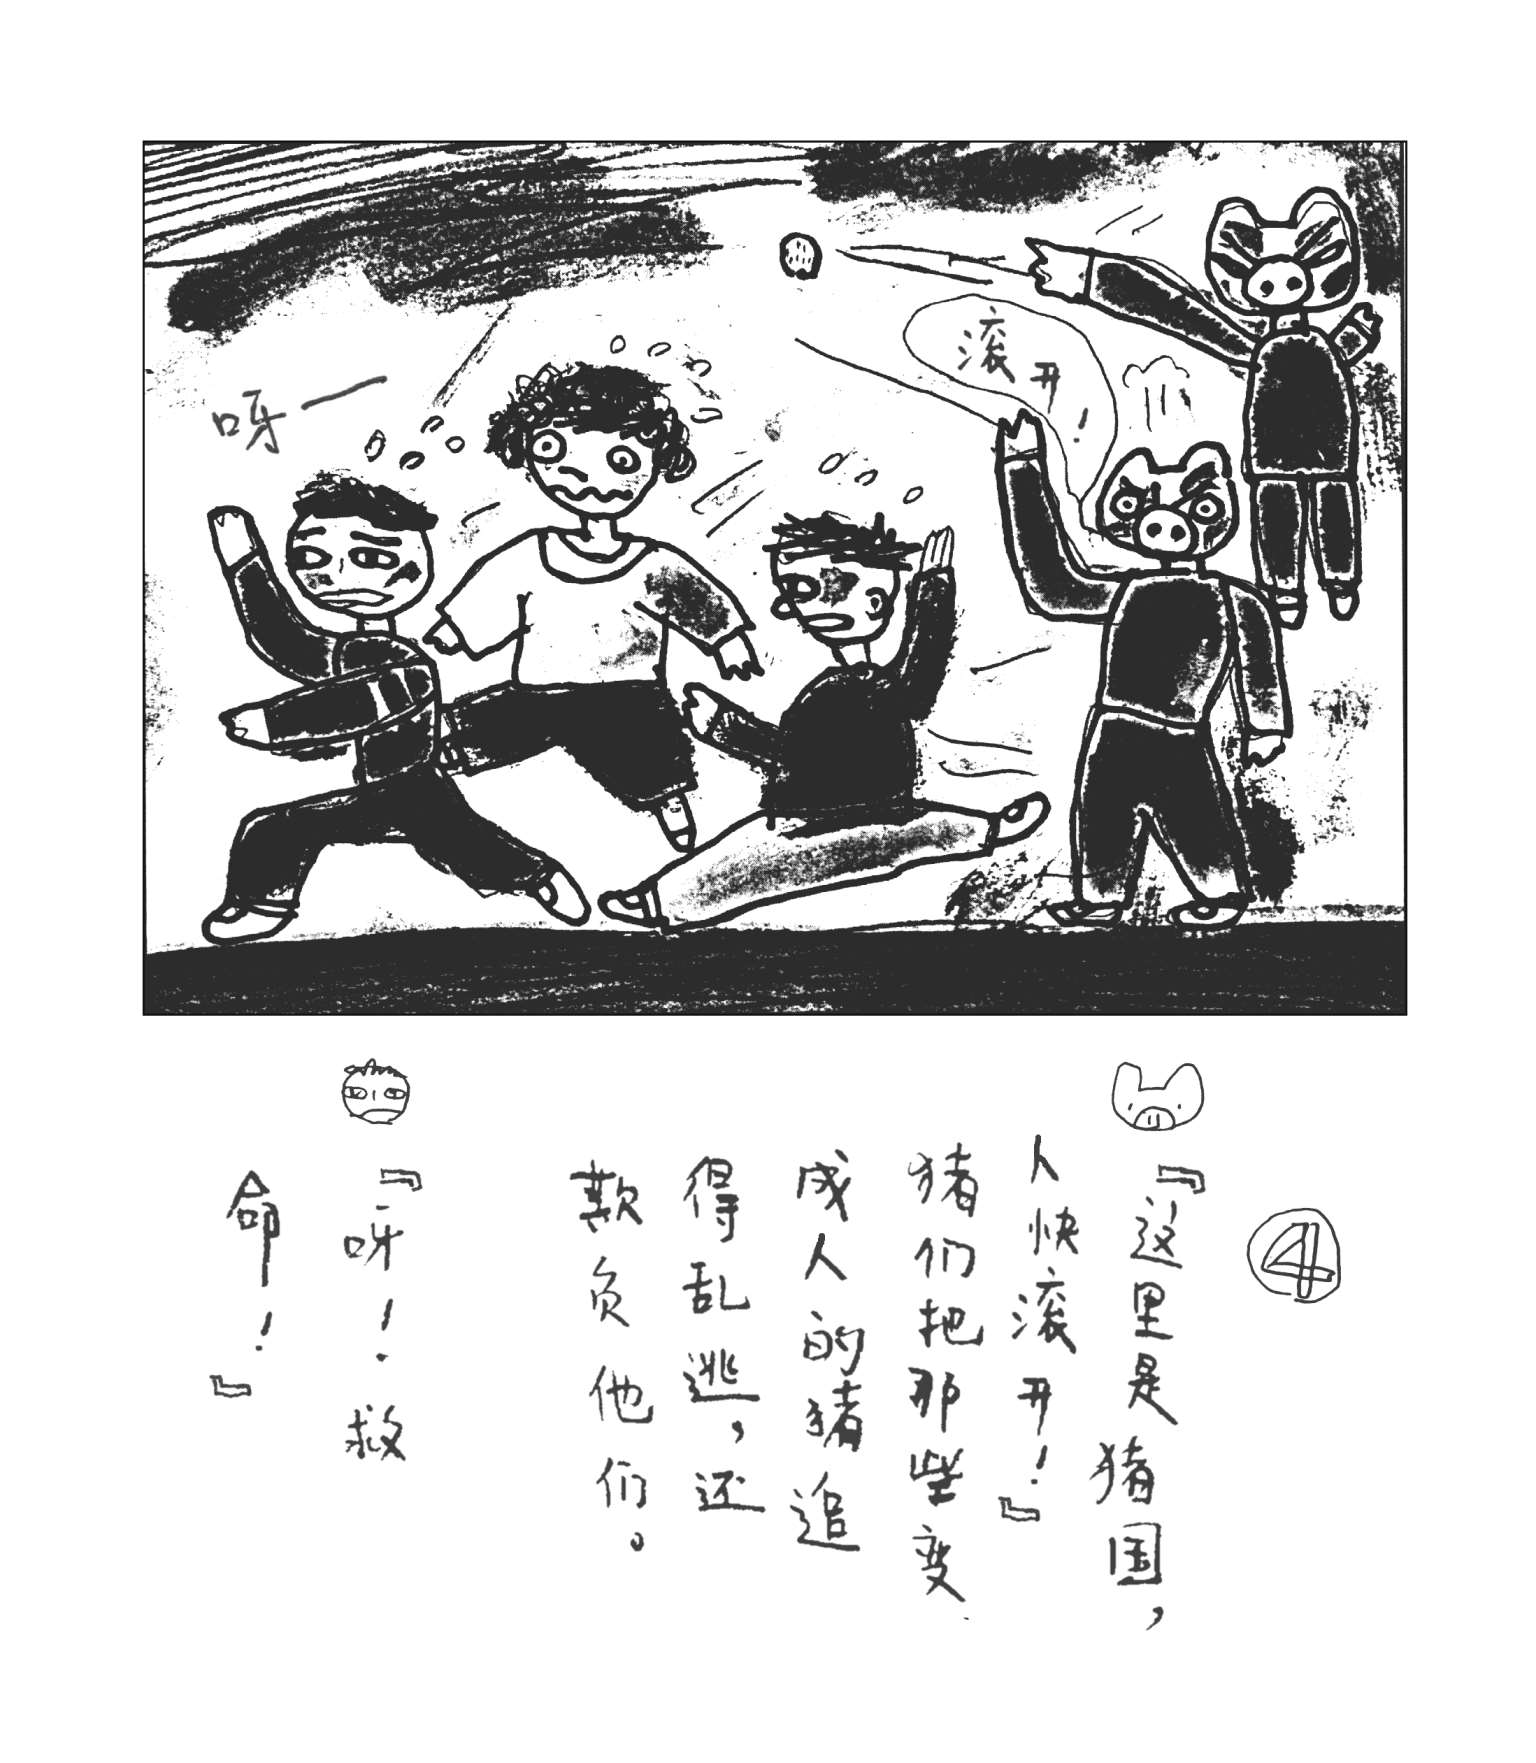 呀一
滚开！
④
『这里是猪国，
人快滚开！』
猪们把那些变
成人的猪追
得乱逃，还
欺负他们。
『呀！救
命！』